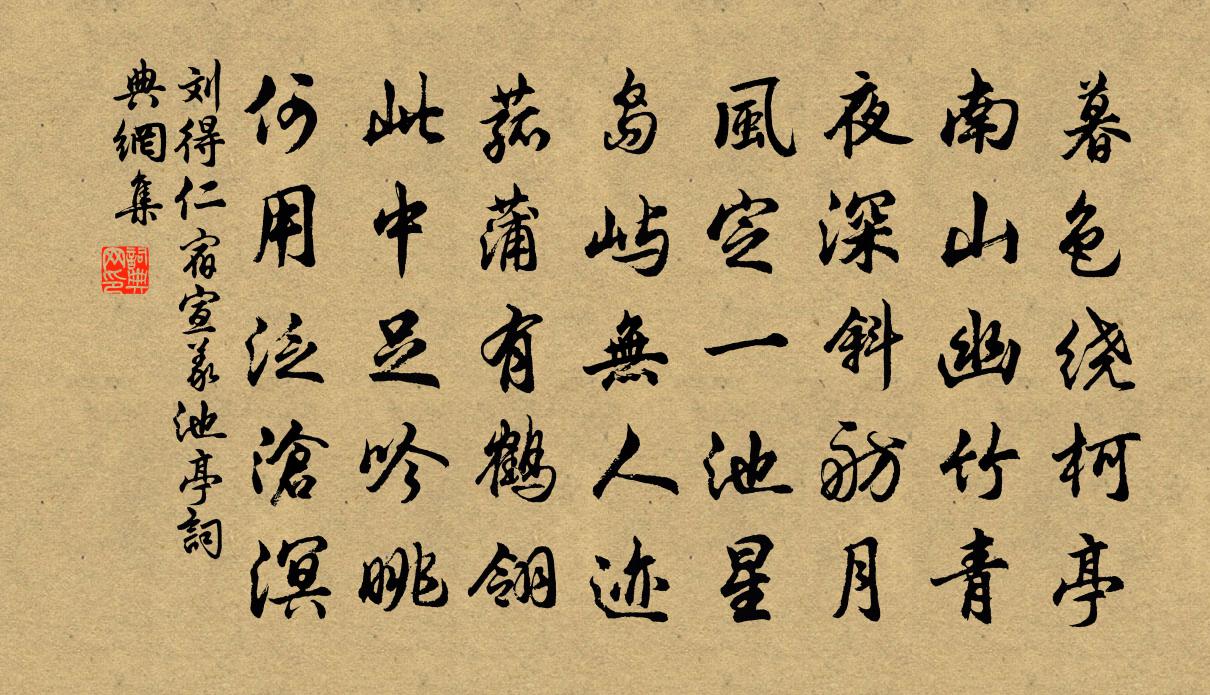 暮色绕柯亭
南山幽竹青
夜深斜舫月
風定一池星
島嶼無人迹
菰蒲有鶴翎
此中足吟眺
何用泛滄溟
刘得仁宿宣義池亭詞
典網集
詞典网印